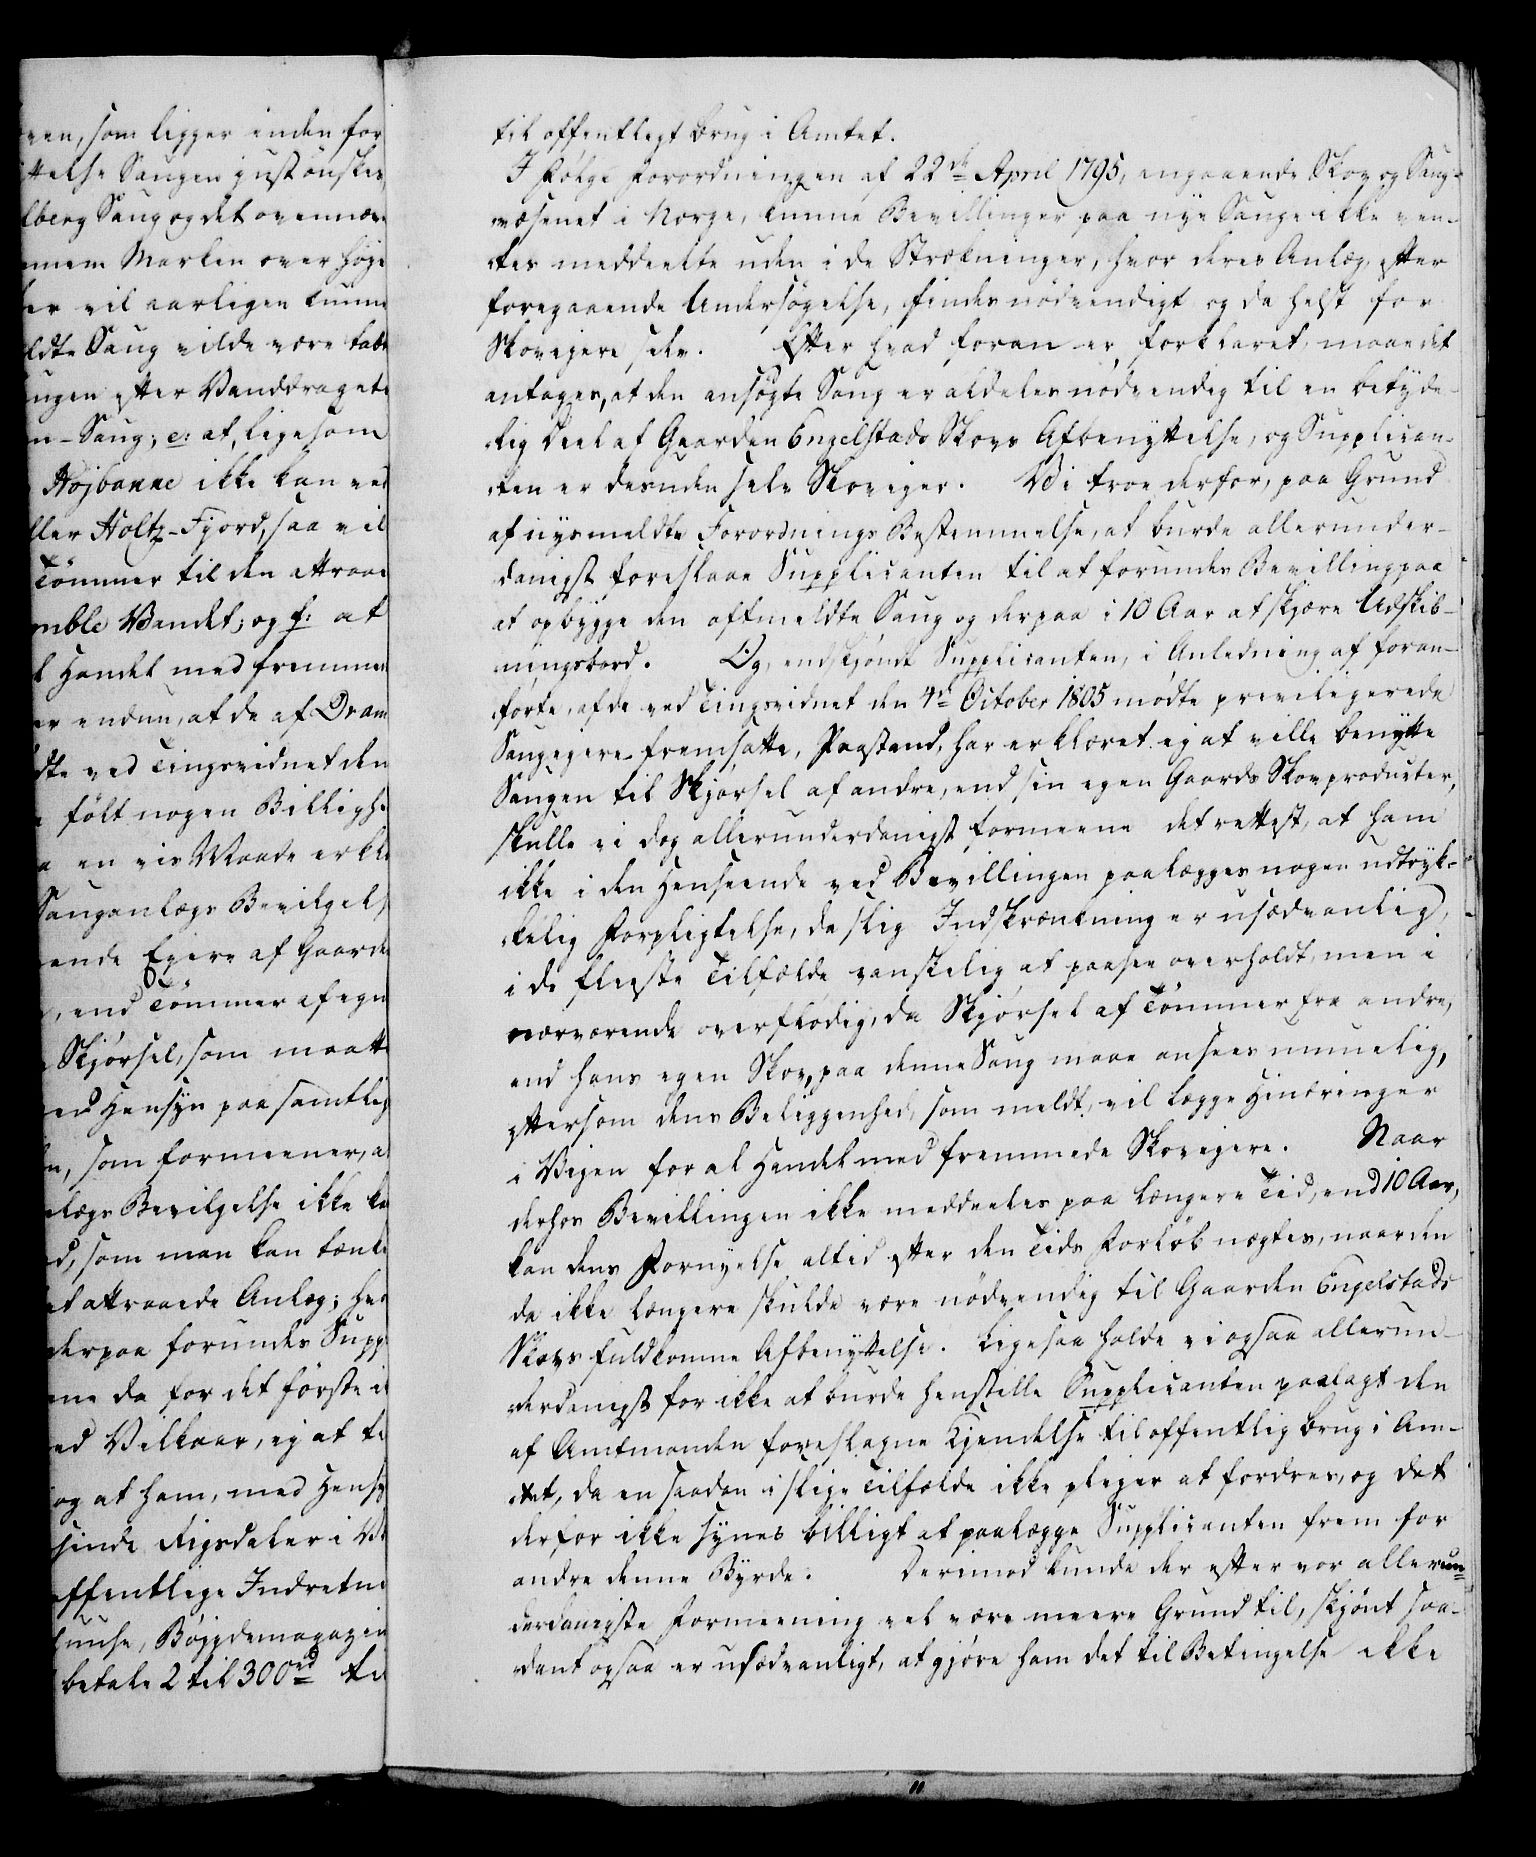 een, som ligger inden for
ttelse Saugen just ønskes
lberg Saug og det ovennæv
nnem Marken over Høye
er vil aarligen kunne
ldte Saug vilde være bædr
ugen efter Vanddraget
n-Saug; e: at, ligesom
Højbanne ikke kan ved
ller Holtz-Fjord, saa vil
Tømmer til den attraae
mble Vandet; og f: at
l Handel med fremmed
er endnu, at de af Dram
dte ved Tingsvidnet den
følt nogen Billigh
en vis Maade erkl
Sauganlægs Bevilgel
ende Eyere af Gaarde
, end Tømmer af egn
Skjørsel, som maatt
ed Hensyn paa samtlig
n, som formeener, a
lægs Bevilgelse ikke ka
d, som man kan tænk
et attraaede Anlæg; h
derpaa forundes Supp
ne da for det første i
ed Vilkaar, ej at t
og at ham, med Hensy
sinde Rigsdaler i
ffentlige Indretn
huuse, Bøjgdemagazin
betale 2 til 300rd ti
til offentligt Brug i Amtet.
I Følge Forordningen af 22de April 1795, angaaende Skov og Saug-
væsenet i Norge, kunne Bevillinger paa nye Sauge ikke ven-
tes meddeelte uden i de Strækninger, hvor deres Anlæg, efter
foregaaende Undersøgelse, findes nødvendigt og da helst for
Skovejere selv. Efter hvad foran er forklaret, maae det
antages, at den ansøgte Saug er aldeles nødvendig til en betyde-
lig Deel af Gaarden Engelstads Skovs Afbenyttelse, og Supplican-
ten er desuden selv Skovejer. Vi troe derfor, paa Grund
af nysmeldte Forordnings Bestemmelse, at burde allerunder-
danigst foreslaae Supplicanten til at forundes Bevilling paa
at opbygge den oftmeldte Saug og derpaa i 10 Aar at skjære Udskib-
ningsbord. Og, endskjøndt Supplicanten, i Anledning af foran-
førte, af de ved Tingsvidnet den 4de October 1805 mødte priviligerede
Saugejere fremsatte, Paastand, har erklæret ej at ville benytte
Saugen til Skjørsel af andre, end sin egen Gaards Skovproducter,
skulle vi dog allerunderdanigst formeene det rettest, at ham
ikke i den Henseende ved Bevillingen paalægges nogen udtryk-
kelig Forpligtelse, da slig Indskrænkning er usædvanlig,
i de fleeste Tilfælde vanskelig at paasee overholdt, men i
nærværende overflødig, da Skjørsel af Tømmer fra andre,
end hans egen Skov, paa denne Saug maae ansees umuelig,
eftersom dens Beliggenhed, som meldt, vil lægge Hindringer
i Vejen for al Handel med fremmede Skovejere. Naar
derhos Bevillingen ikke meddeeles paa længere Tid, end 10 Aar,
kan dens Fornyelse altid efter den Tids Forløb nægtes, naar den
da ikke længere skulde være nødvendig til Gaarden Engelstads
Skovs fuldkomne Afbenyttelse. Ligesaa holde vi ogsaa allerun-
derdanigst for ikke at burde henstille Supplicanten paalagt den
af Amtmanden foreslagne Kjendelse til offentlig Brug i Am-
tet, da en saadan i slige Tilfælde ikke plejer at fordres, og det
derfor ikke synes billigt at paalægge Supplicanten frem for
andre denne Byrde. Derimod kunde der efter vor allerun-
derdanigste Formeening vel være meere Grund til, skjønt saa-
dant ogsaa er usædvanligt, at gjøre ham det til Betingelse ikke